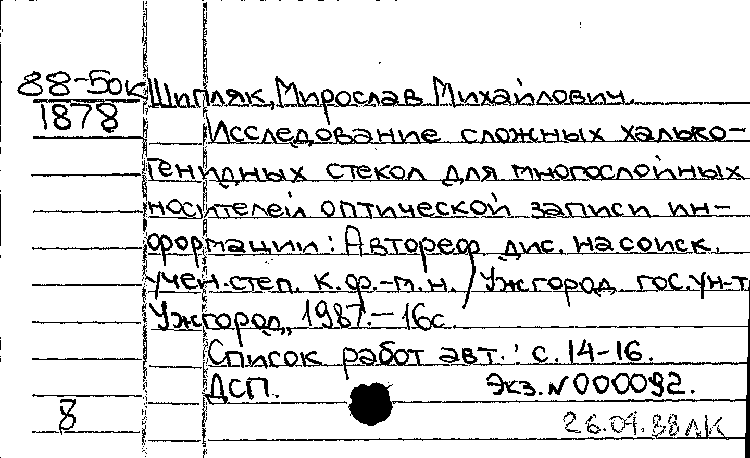 88-5ок Шипляк, Мирослав Михайлович.
1878 Исследование сложных халько-
генидных стекол для многослойных
носителей оптической записи ин-
формации: Автореф. дис. на соиск.
учен. степ. к.ф.-м.н. / Ужгород. гос. ун-т
Ужгород, 1987. – 16с.
Список работ авт.: с. 14-16.
ДСП. Экз. N 000092.
8 26.04.88 ЛК